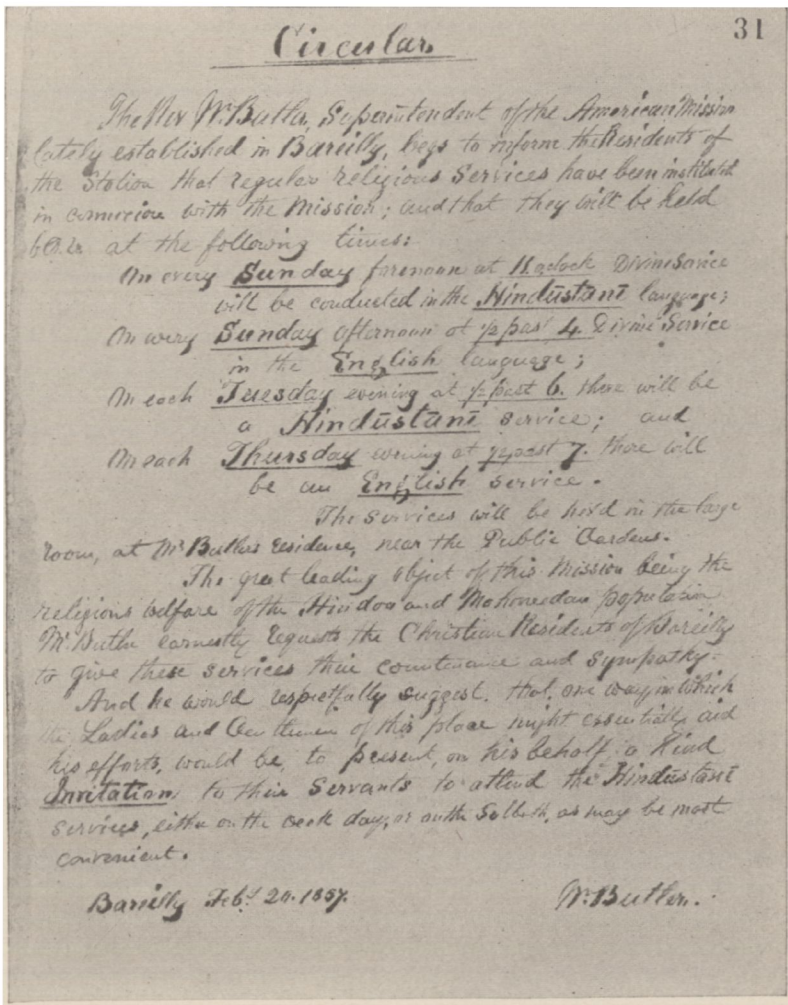 31
Circular.
The Rev Wm Butler, Superintendent of the American Mission
lately established in Bareilly, begs to inform the Residents of
the Station that regular religious Services have been instituted
in connexion with the Mission; and that they will be held
at the following times:
On every Sunday forenoon at 11 oclock Divine Service
will be conducted in the Hindūstānī language;
On every Sunday afternoon at ½ past 4. Divine Service
in the English language;
On each Tuesday evening at ½ past 6. there will be
a Hindūstānī service; and
On each Thursday evening at ½ past 7. there will
be an English service.
The services will be held in the large
room, at Mr Butlers residence, near the Public Gardens.
The great leading object of this Mission being the
religious welfare of the Hindoo and Mahomedan population
Mr Butler earnestly requests the Christian Residents of Bareilly
to give these services their countenance and sympathy.
And he would respectfully suggest, that, one way in which
the Ladies and Gentlemen of this place might essentially aid
his efforts, would be, to present, on his behalf a Kind
Invitation to their Servants to attend the Hindūstānī
services, either on the week day, or on the Sabbath, as may be most
convenient.
Bareilly Feby 20. 1857. Wm Butler.